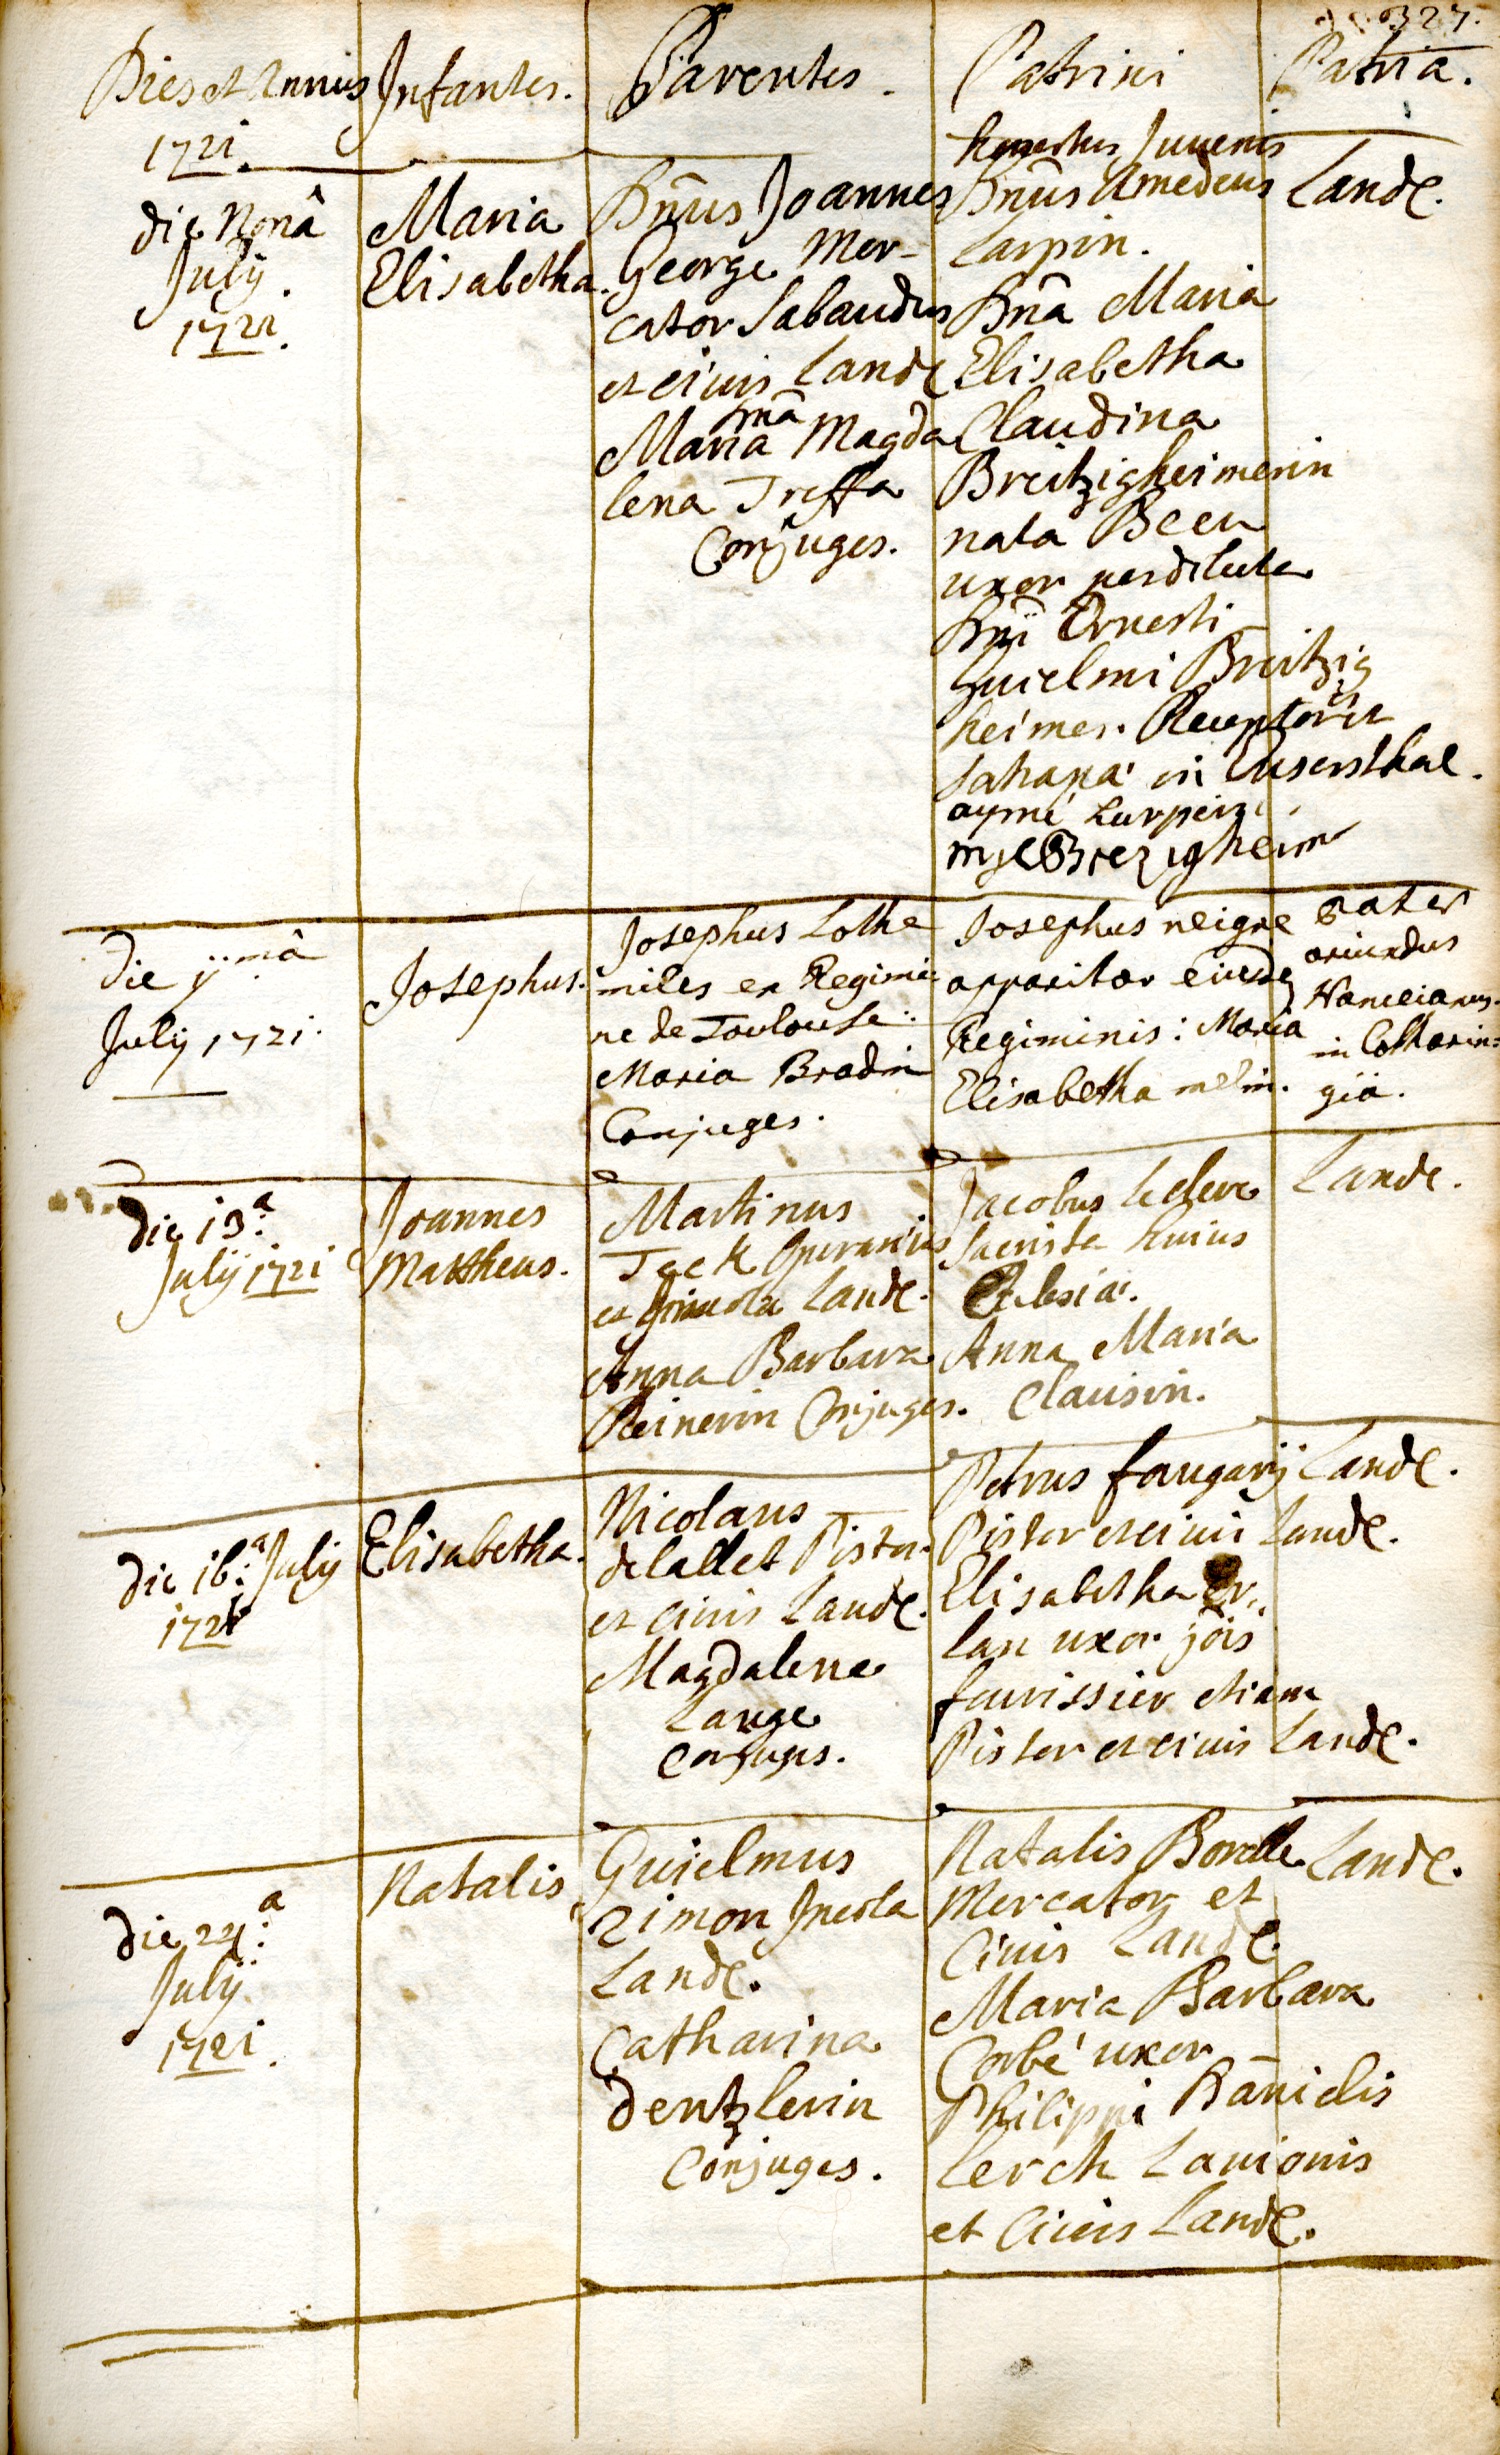 327.
Dies et Annus
1721.
Infantes.
Parentes.
Patrini
Patria.
die Nonâ
July.
1721.
Maria
Elisabetha.
Dn̄us Joannes
George Mer-
cator Sabaudus
et civis Landę
Maria Magda
lena Treffa
Conjuges.
honestus Juvenis
Dn̄us Amedeus
Larpin.
Dn̄a Maria
Elisabetha
Claudina
Breitzigheimerin
nata Been
uxor
Dn̄i Ernesti
Guielmi Breitzig
heimer. Receptoris
in Eusersthal.
aymé Larpin
Brezigheim
Landę.
die ijmâ
July 1721.
Josephus.
Josephus Lothe
miles ex Regimi-
ne de Toulouse:
Maria Bradin
Conjuges.
Josephus neigre
apparitor eiusdē
Regiminis: Maria
Elisabetha melin.
Pater
oriundus
Nanceianus.
in Lotharin=
giâ.
die 13.ª
July 1721
Joannes
Mattheus.
Martinus
Jack Operarius
et Incola Landę.
Anna Barbara
Reinerin Conjuges.
Jacobus leclerc
huius
Eclesiæ.
Anna Maria
Clausin.
Landę.
die 16.ª July
1721
Elisabetha.
Nicolaus
delallet Pistor
et civis Landę.
Magdalena
Lange
Conjuges.
Petrus faugary
Pistor et civis Landę.
Elisabetha Er,,
lan uxor jōis
faurissier etiam
Pistor et civis Landę.
Landę.
die 24.ª
July
1721.
Natalis
Guielmus
Zimon Incola
Landę.
Catharina
Dentzlerin
Conjuges.
Natalis Borelle
Mercator et
Civis Landę.
Maria Barbara
Corbé uxor
Philippi Danielis
Lerch Lanionis
et Civis Landę.
Landę.